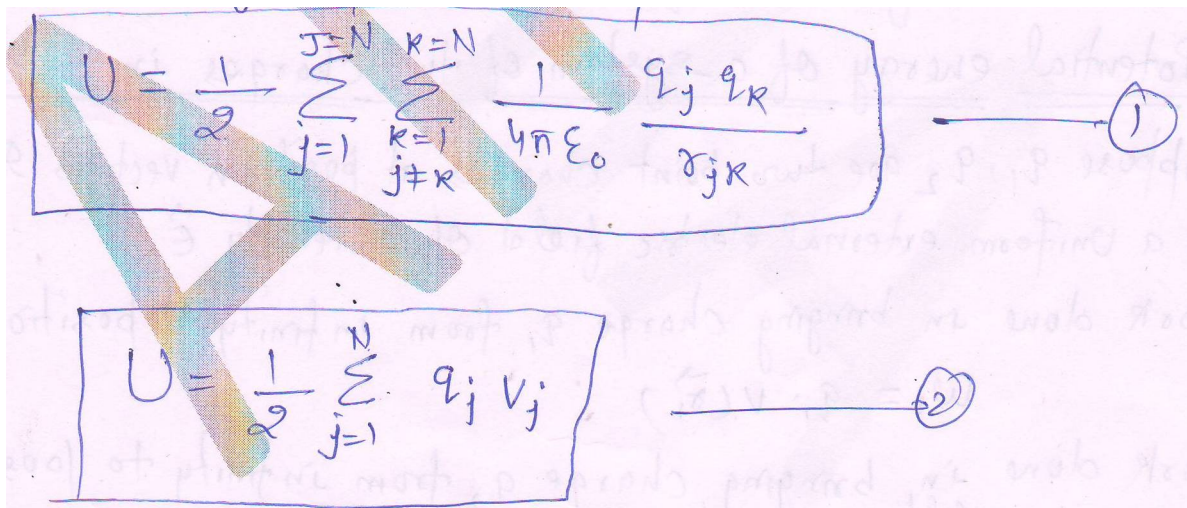 U = 1/2 Σ_{j=1}^{J=N} Σ_{k=1, j≠k}^{k=N} 1/(4πε₀) (q_j q_k)/(r_{jk}) — ①
U = 1/2 Σ_{j=1}^{N} q_j V_j — ②